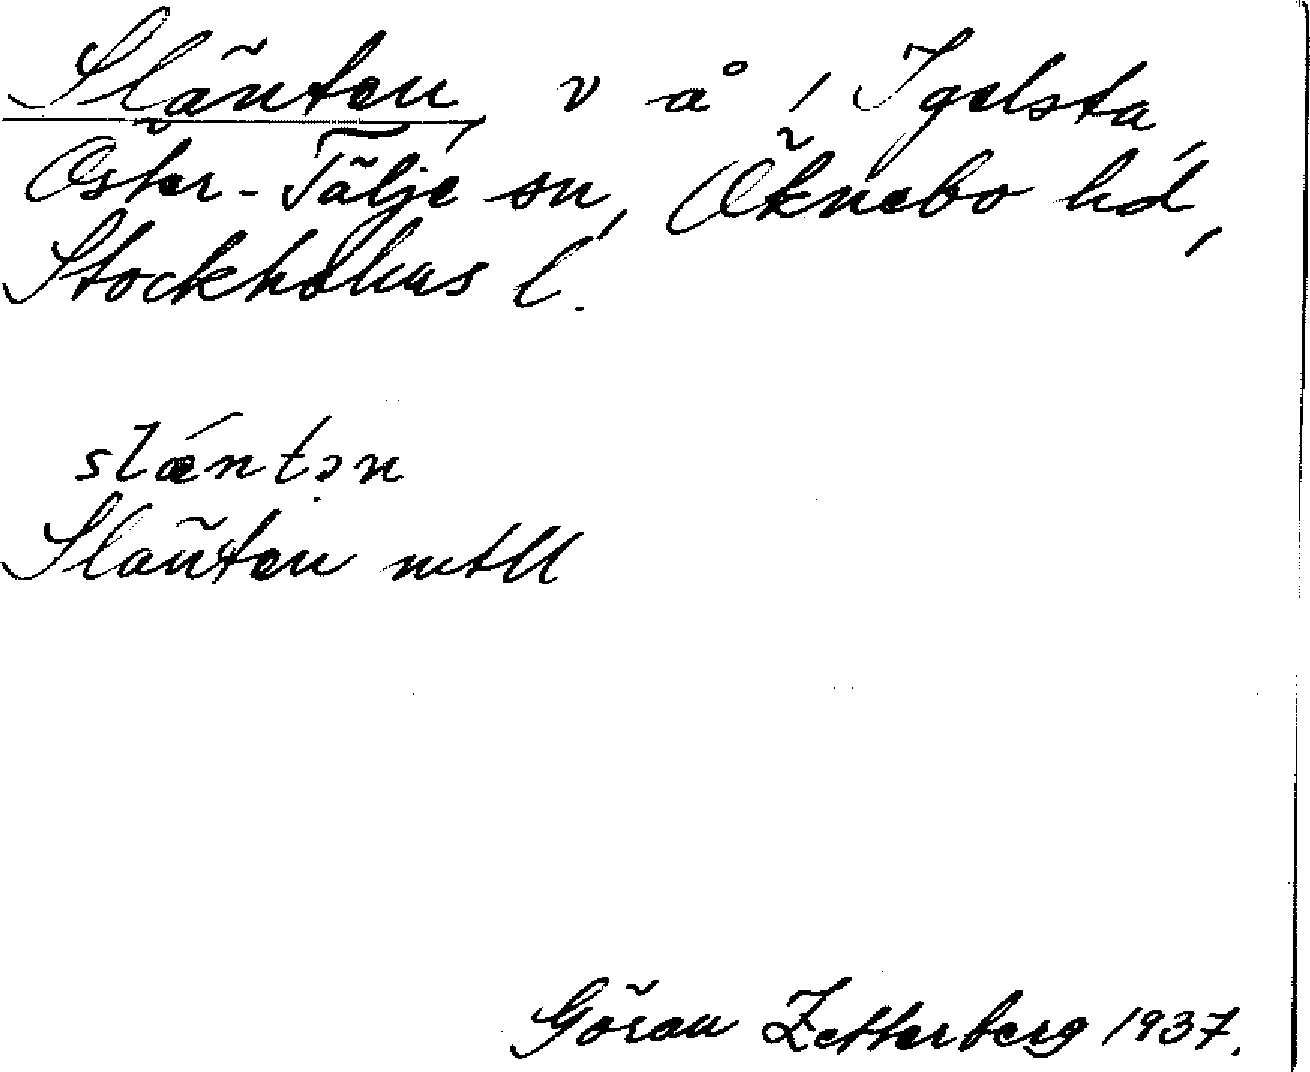 Slänten, v å i Igelsta,
Öster-Tälje sn, Öknebo hd,
Stockholms l.
slǽntən
Slänten mtll
Göran Zetterberg 1937.